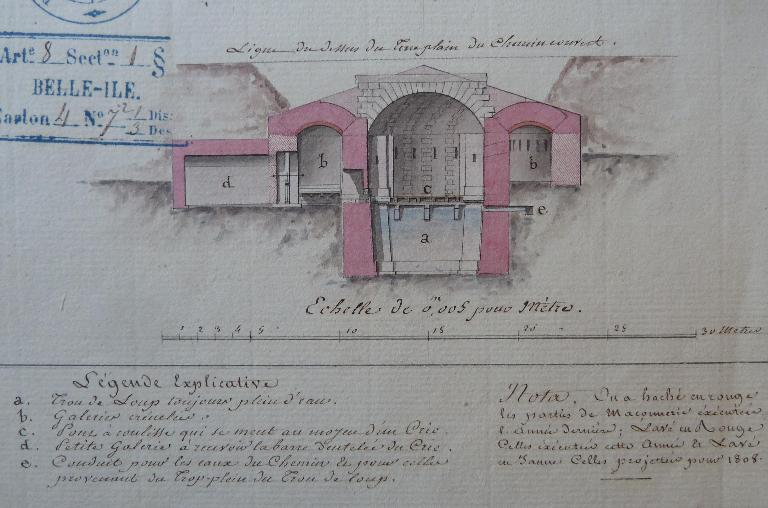 Art.e 8 Sect.on 1 §
BELLE-ILE.
Carton 4 N.o 7 2 1 Dis:
3 Des
Ligne du dessus du Terreplain du Chemin couvert.
b
b
d
c
e
a
Echelle de 0,m005 pour Mètre.
1 2 3 4 5 10 15 20 25 30 Mètres
Légende Explicative
a. Trou de Loup toujours plein d'eau.
b. Galeries crénelées.
c. Pont à coulisse qui se meut au moyen d'un Cric.
d. Petite Galerie à recevoir la barre dentelée du Cric.
e. Conduit pour les eaux du Chemin et pour celles
provenant du Trop-plein du Trou de loup.
Nota. On a haché en rouge
les parties de Maçonnerie exécutées
l'Année dernière; Lavé en Rouge
Celles exécutées cette Année et Lavé
en Jaune Celles projettées pour 1808.